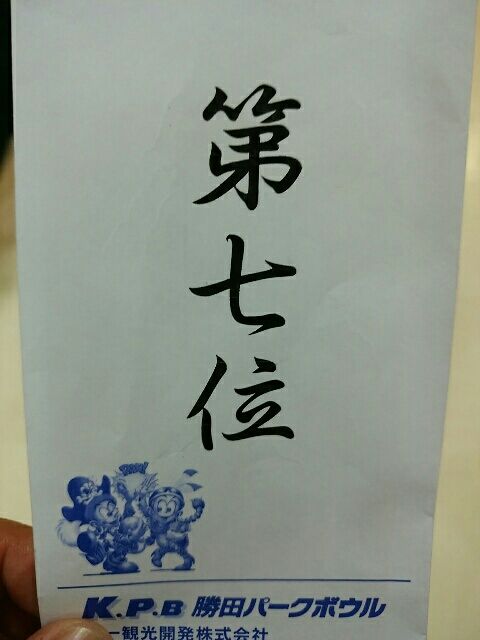 第七位
K.P.B 勝田パークボウル
一観光開発株式会社